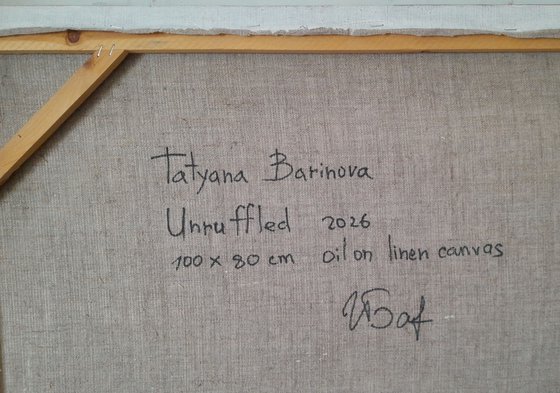 Tatyana Barinova
Unruffled 2026
100 x 80 cm oil on linen canvas